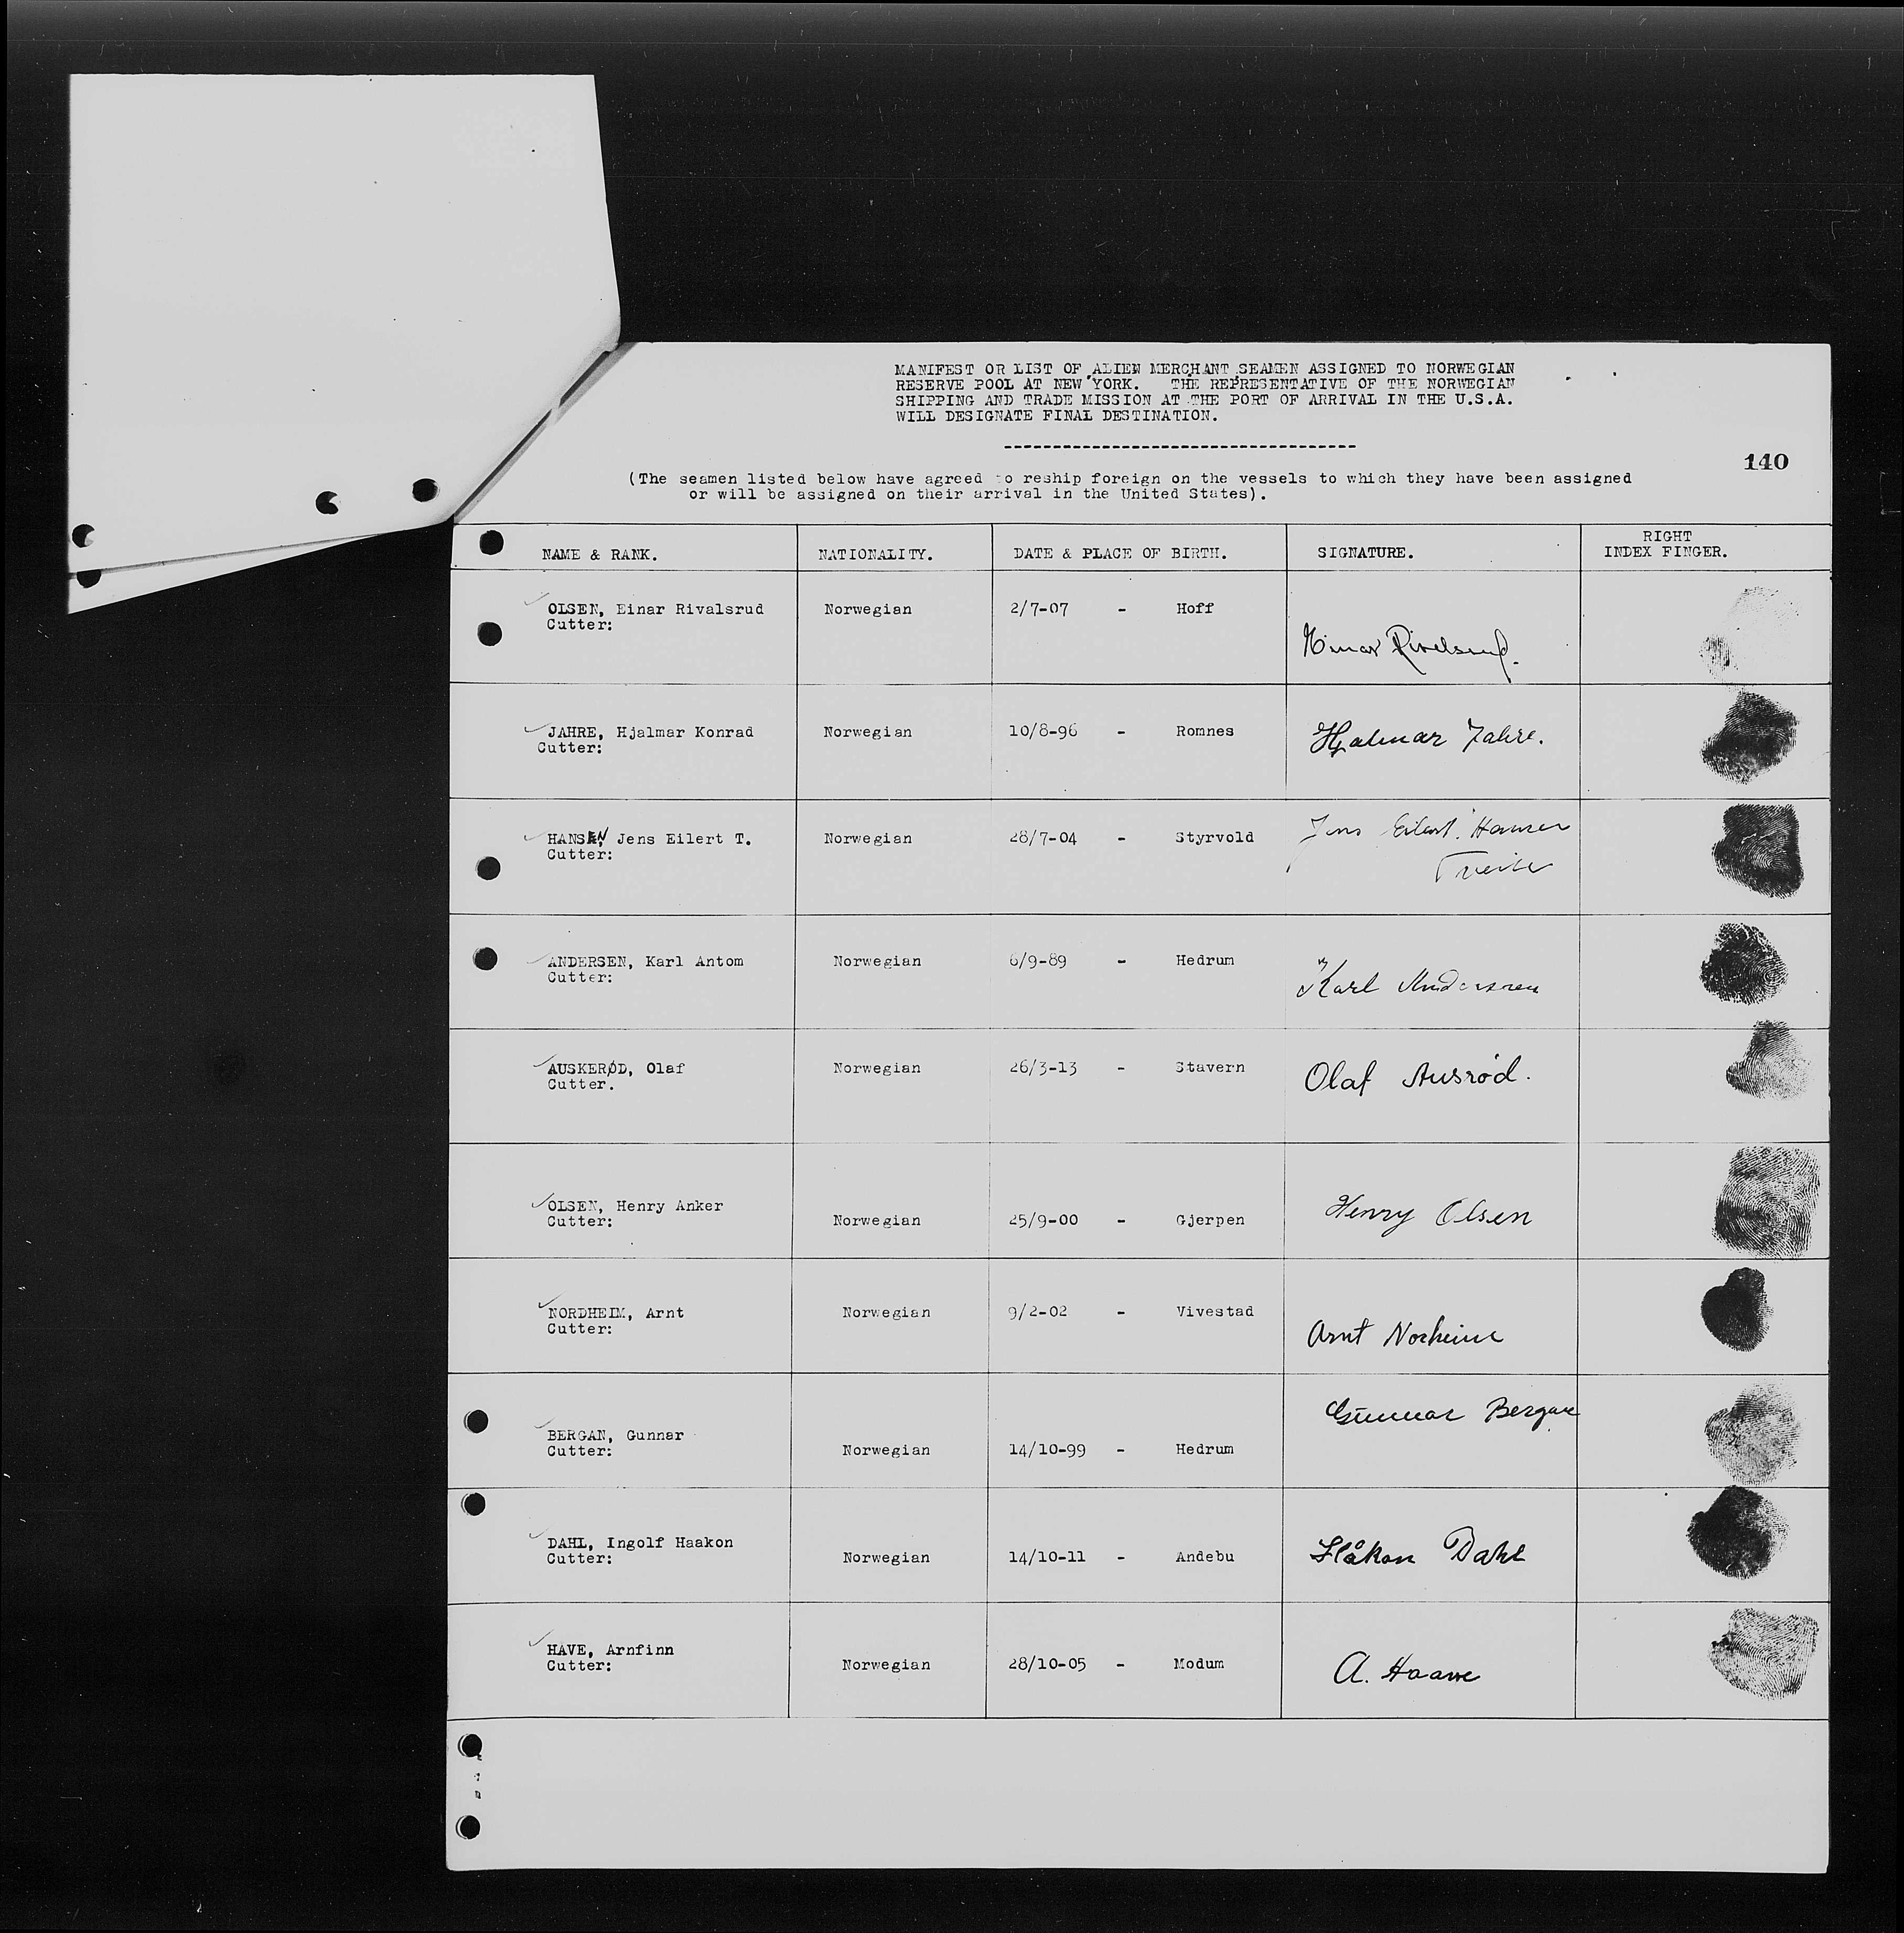 MANIFEST OR LIST OF ALIEN MERCHANT SEAMEN ASSIGNED TO NORWEGIAN
RESERVE POOL AT NEW YORK. THE REPRESENTATIVE OF THE NORWEGIAN
SHIPPING AND TRADE MISSION AT THE PORT OF ARRIVAL IN THE U.S.A.
WILL DESIGNATE FINAL DESTINATION.
------------------------------------
140
(The seamen listed below have agreed to reship foreign on the vessels to which they have been assigned
or will be assigned on their arrival in the United States).
NAME & RANK. NATIONALITY. DATE & PLACE OF BIRTH. SIGNATURE. RIGHT
INDEX FINGER.
OLSEN, Einar Rivalsrud Norwegian 2/7-07 - Hoff
Cutter:
Einar Rivelsrud.
JAHRE, Hjalmar Konrad Norwegian 10/8-96 - Romnes Hjalmar Jahre.
Cutter:
HANSEN, Jens Eilert T. Norwegian 28/7-04 - Styrvold Jens Eilert. Hansen
Cutter:
Tveite
ANDERSEN, Karl Antom Norwegian 6/9-89 - Hedrum
Cutter:
Karl Anderssen
AUSKERØD, Olaf Norwegian 26/3-13 - Stavern Olaf Ausrød.
Cutter.
OLSEN, Henry Anker
Cutter: Norwegian 25/9-00 - Gjerpen Henry Olsen
NORDHEIM, Arnt Norwegian 9/2-02 - Vivestad
Cutter:
Arnt Norheim
Gunnar Bergan
BERGAN, Gunnar
Cutter: Norwegian 14/10-99 - Hedrum
DAHL, Ingolf Haakon
Cutter: Norwegian 14/10-11 - Andebu Håkon Dahl
HAVE, Arnfinn
Cutter: Norwegian 28/10-05 - Modum A. Haave